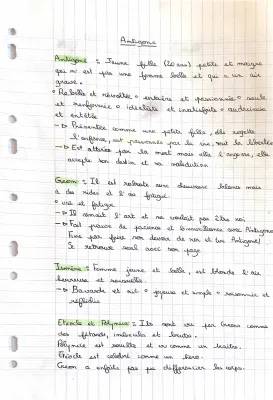 Antigone
Antigone : Jeune fille (20 ans) petite et maigre
qui n'est pas une femme belle et qui a un air
grave.
Rebelle et révoltée entière et passionnée seule
et renfermée idéaliste et insatisfaite audacieuse
et entêtée
→ Présentée comme une petite fille, elle rejette
l'enfance, est passionnée par la vie, la liberté
→ Est attirée par la mort mais elle l'angoisse, elle
accepte son destin et sa malédiction
Créon : Il est robuste aux cheveux blancs mais
a des rides et l'air fatigué
usé et fatigué
→ Il aimait l'art et ne voulait pas être roi
→ Fait preuve de patience et bienveillance avec Antigone
Finie par faire son devoir de roi et tue Antigone
Se retrouve seul avec son page
Ismène : Femme jeune et belle, est blonde l'air
heureuse et
→ Bavarde et rit joyeuse et simple raisonnée et
réfléchie
Étéocle et Polynice : Ils sont vu par Créon comme
des fêtards, imbéciles et brutes.
Polynice est souillé et vu comme un traître.
Étéocle est célébré comme un héros.
Créon a enfaits pas pu différencier les corps.